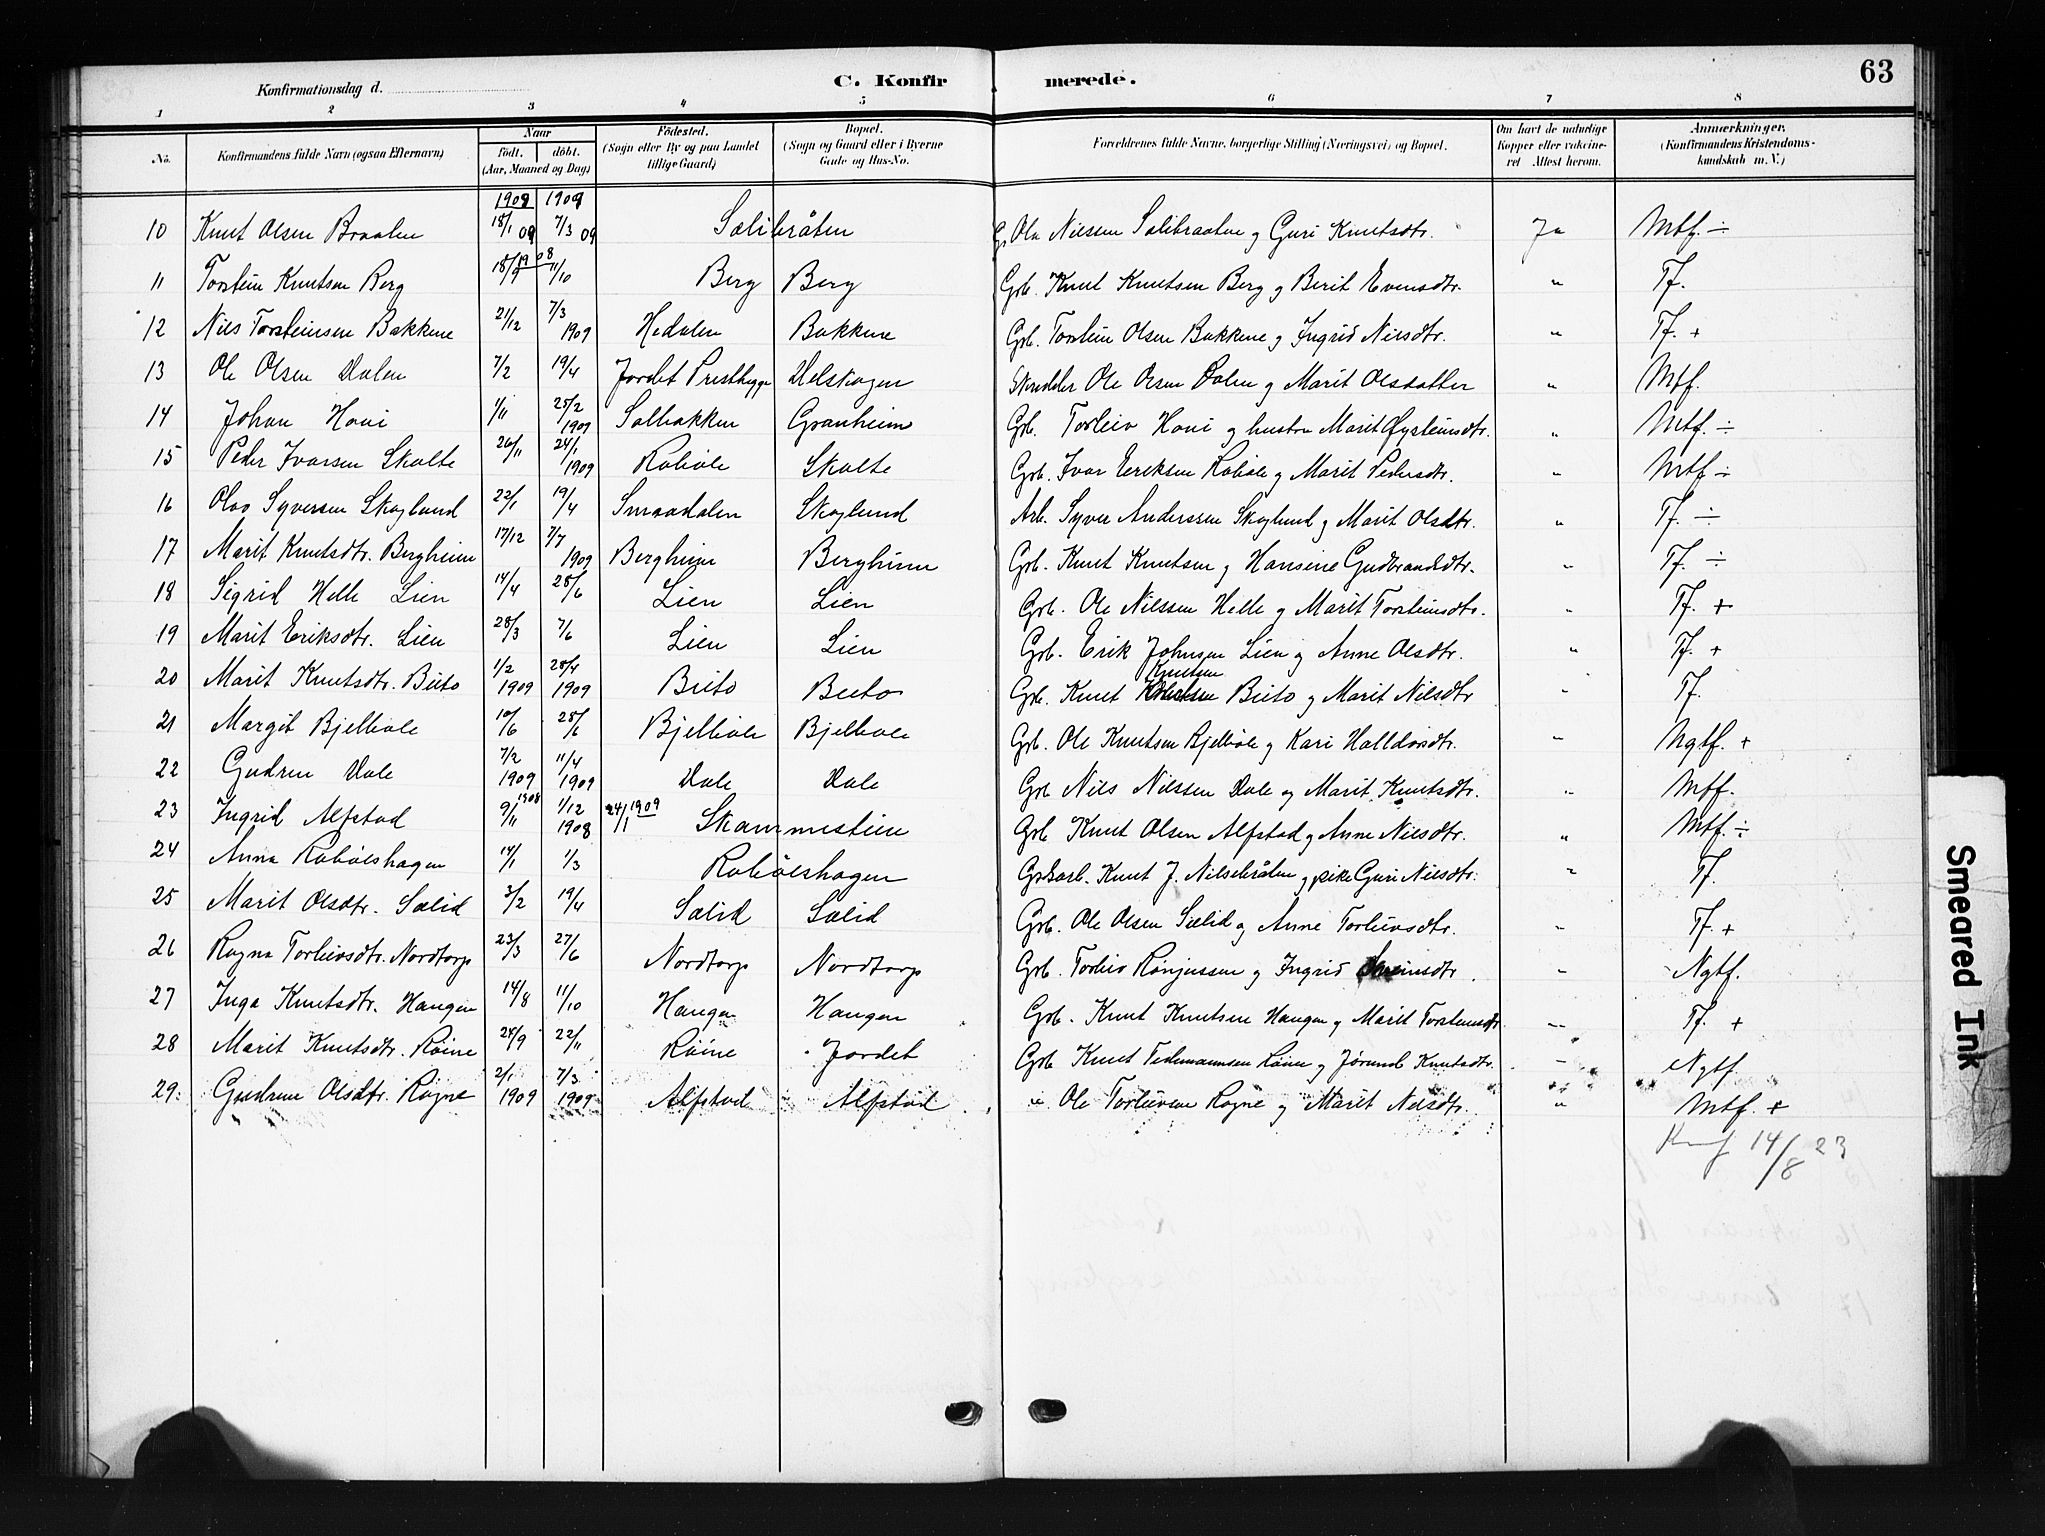 63
Konfirmationsdag d.
C. Konfirmerede.
1 2 3 4 5 6 7 8
No. Konfirmandens fulde Navn (ogsaa Efternavn) Naar født. døbt. (Aar, Maaned og Dag) Fødested. (Sogn eller By og paa Landet tillige Gaard) Bopæl. (Sogn og Gaard eller i Byerne Gade og Hus-No. Forældrenes fulde Navne, borgerlige Stilling (Næringsvei) og Bopæl. Om havt de naturlige Kopper eller vakcineret Attest herom. Anmærkninger. (Konfirmandens Kristendomskundskab m. V.)
1909 1909
10 Knut Olsen Braaten 18/1 09 7/3 09 Sælibråten G. Ola Nilssen Sælibraaten og Guri Knutsdtr. Ja Mtf. ÷
1908
11 Torstein Knutsen Berg 18/7 11/10 Berg Berg Grb. Knut Knutsen Berg og Berit Evensdtr. " Tf.
12 Nils Torsteinsen Bakkene 21/12 7/3 1909 Hedalen Bakkene Grb. Torstein Olsen Bakkene og Ingrid Nilsdtr. " Tf. +
13 Ole Olsen Dalen 7/2 19/4 Jordet Presthegge Helskogen Skrædder Ole Olsen Dalen og Marit Olsdatter " Mtf.
14 Johan Hovi 1/11 25/2 1909 Solbakken Granheim Grb. Torleiv Hovi og hustru Marit Øysteinsdtr. " Mtf. ÷
15 Peder Ivarsen Skalte 26/11 24/1 1909 Robøle Skolte Grb. Ivar Eriksen Robøle og Marit Pedersdtr. " Mtf ÷
16 Olav Syversen Skoglund 22/1 19/4 Smaadalen Skoglund Arb. Syver Anderssen Skoglund og Marit Olsdtr. " Tf. ÷
17 Marit Knutsdtr. Bergheim 17/12 7/7 1909 Bergheim Bergheim Grb. Knut Knutsen og Hansine Gudbrandsdtr. " Tf. ÷
18 Sigrid Helle Lien 14/4 28/6 Lien Lien Grb. Ole Nilssen Helle og Marit Torsteinsdtr. " Tf. +
19 Marit Eriksdtr. Lien 28/3 7/6 Lien Lien Grb. Erik Johnsen Lien og Anne Olsdtr. " Tf. +
20 Marit Knutsdtr. Beito 1/2 1909 28/4 1909 Beito Beito Grb. Knut Knutsen Beito og Marit Nilsdtr " Tf.
21 Margit Bjelbøle 10/6 28/6 Bjelbøle Bjelbøle Grb. Ole Knutsen Bjelbøle og Kari Halldorsdtr. " Mgtf. +
22 Gudrun Dale 7/2 1909 11/4 1909 Dale Dale Grb Nils Nilssen Dale og Marit Knutsdtr. " Mtf.
23 Ingrid Alfstad 9/11 1908 1/12 1908 24/1 1909 Skammestein Grb Knut Olsen Alfstad og Anne Nilsdtr. " Mtf. ÷
24 Anna Robøleshagen 14/1 1/3 Robøleshagen Grdsarb. Knut J. Nilsebråten og pike Guri Nilsdtr. " Tf.
25 Marit Olsdtr. Sælid 3/2 19/4 Sælid Sælid Grb. Ole Olsen Sælid og Anne Torleivsdtr. " Tf. +
26 Ragna Torleivsdtr. Nordtorp 23/3 27/6 Nordtorp Nordtorp Grb. Torleiv Rønjussen og Ingrid Sveinsdtr " Ngtf.
27 Inga Knutsdtr. Haugen 14/8 11/10 Haugen Haugen Grb. Knut Knutsen Haugen og Marit Torsteinsdtr " Tf. +
28 Marit Knutsdtr. Røine 24/9 22/11 Røine Jordet Grb Knut Tidemannsen Røine og Jørund Knutsdtr. " Ngtf.
29. Gudrun Olsdtr. Rogne 2/1 1909 7/3 1909 Alfstad Alfstad " Ole Torleivsen Rogne og Marit Nilsdtr. " Mtf. +
14/8 23
Smeared Ink